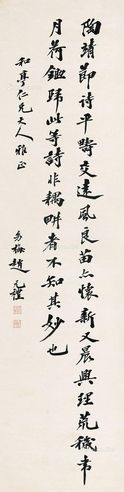 陶靖節诗平畴交遠風良苗亦懷新又晨興理荒穢帯
月荷鋤歸此等詩非耦畊者不知其妙也
和亭仁兄大人雅正
趙